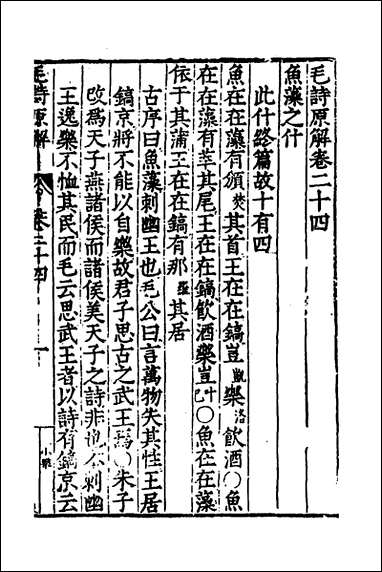 毛詩原解卷二十四
魚藻之什
此什終篇故十有四
魚在在藻有頒焚其首王在在鎬豈凱樂洛飲酒○魚
在在藻有莘其尾王在在鎬飲酒樂豈上○魚在在藻
依于其蒲王在在鎬有那其居
古序曰魚藻刺幽王也毛公曰言萬物失其性王居
鎬京將不能以自樂故君子思古之武王焉○朱子
改爲天子燕諸侯而諸侯美天子之詩非也不刺幽
王逸樂不恤其民而毛云思武王者以詩有鎬京云
毛詩原解 卷二十四 一
小雅